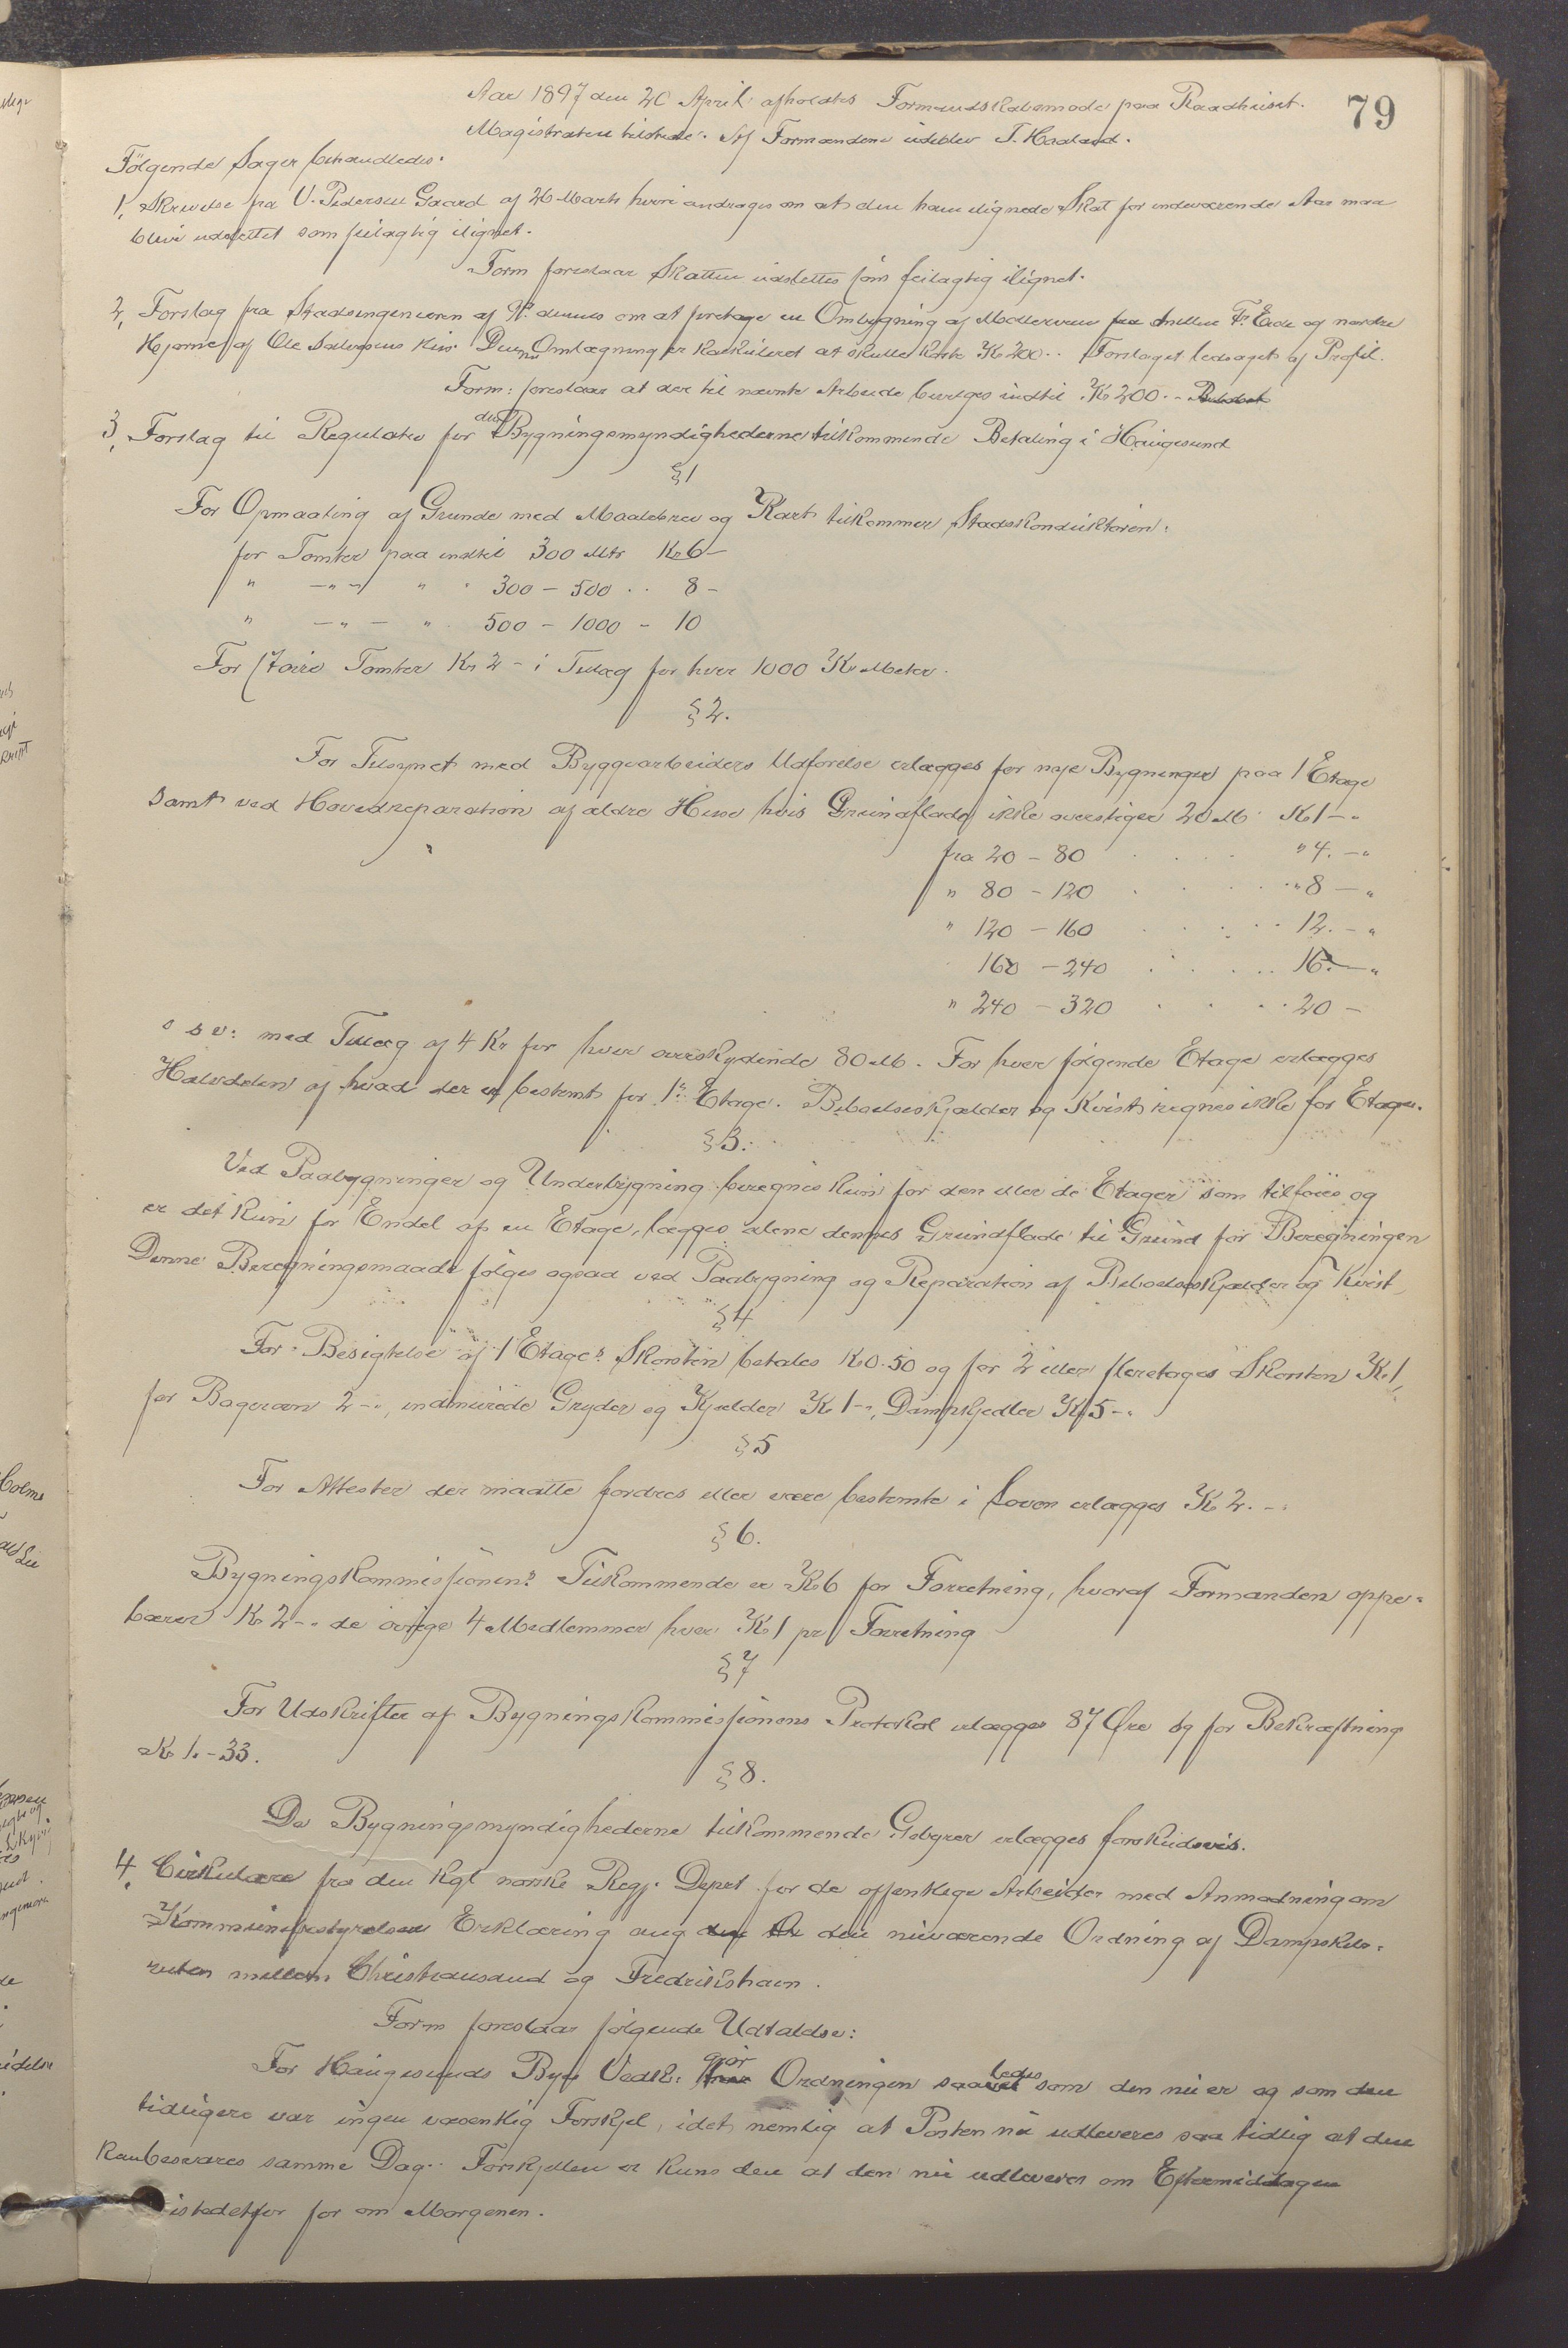 79
Aar 1897 den 20 April afholdtes Formandskabsmøde paa Raadhuset.
Magistraten tilstede. Af Formændene udeblev T. Haaland.
Følgende Sager behandledes.
1, Skrivelse fra V. Pedersen Gaard af 26 Marts hvori andrages om at den ham ilignede Skat for indeværende Aar maa
blive udslettet som feilagtig ilignet.
Form foreslaar Skatten udslettes som feilagtig ilignet.
2, Forslag fra Stadsingeniøren af dennes om at foretage en Ombygning af Møllerveien mellem Fr. Eide og nordre
Hjørne af Ole Salvesens Hus. Denne Omlægning er kalkuleret at skulle koste Kr 200.. Forslaget ledsaget af Profil.
Form: foreslaar at der til nævnte Arbeide bevilges indtil Kr 200.-
3, Forslag til Regulativ for den Bygningsmyndighederne tilkommende Betaling i Haugesund
§1
For Opmaaling af Grunde med Maalebrev og Kart tilkommer Stadskonduktøren:
for Tomter paa indtil 300 Mtr Kr 6-
" -"- " . 300 - 500 .. 8 -
" -"- " . 500 - 1000 - 10
For større Tomter Kr 2 - i Tillæg for hver 1000 Kv Meter.
§2.
For Tilsynet med Byggearbeiders Udførelse erlægges for nye Bygninger paa 1 Etage
samt ved Hovedreparation af ældre Huse hvis Grundflade ikke overstiger 20 M Kr 1 - "
fra 20 - 80 . . . " 4. - "
" 80 - 120 . . . " 8 - "
" 120 - 160 . . . 12. - "
160 - 240 . . . 16. - "
" 240 - 320 . . . 20 -
o s v: med Tillæg af 4 Kr for hver overskydende 80 M. For hver følgende Etage erlægges
Halvdelen af hvad der er bestemt for 1ste Etage. Beboelseskjælder og Kvist regnes ikke for Etage.
§3.
Ved Paabygninger og Underbygning beregnes kun for den eller de Etager som tilføies og
er det kun for Endel af en Etage, lægges alene dennes Grundflade til Grund for Beregningen
Denne Beregningsmaade følges ogsaa ved Paabygning og Reparation af Beboelseskjælder og Kvist
§4
For Besigtelse af 1 Etages Skorsten betales Kr 0.50 og for 2 eller fleretages Skorsten Kr 1,
for Bagerovn 2 -", indmurede Gryder og Kjedler Kr 1 -", Dampkjedler Kr 5 -"
§5
For Attester der maatte fordres eller være bestemte i Loven erlægges Kr 2. -"
§6.
Bygningskommissionens Tilkommende er Kr 6 for Forretning, hvoraf Formanden oppe-
bærer Kr 2 -" de øvrige 4 Medlemmer hver Kr 1 pr Forretning
§7
For Udskrifter af Bygningskommissionens Protokol erlægges 87 Øre og for Bekræftning
Kr 1.-33.
§8.
De Bygningsmyndighederne tilkommende Gebyrer erlægges forskudsvis.
4. Cirkulære fra den Kgl norske Regj. Depet for de offentlige Arbeider med Anmodning om
Kommunebestyrelsens Erklæring ang den nuværende Ordning af Dampskibs-
ruten mellem Christiansand og Fredrikshavn.
Form foreslaar følgende Udtalelse:
For Haugesunds Bys Vedk: gjør Ordningen saaledes som den nu er og som den
tidligere var ingen væsentlig Forskjel, idet nemlig at Posten nu udleveres saa tidlig at den
kan besvares samme Dag.. Forskjellen er kuns den at den nu udleveres om Eftermiddagen
istedetfor for om Morgenen.